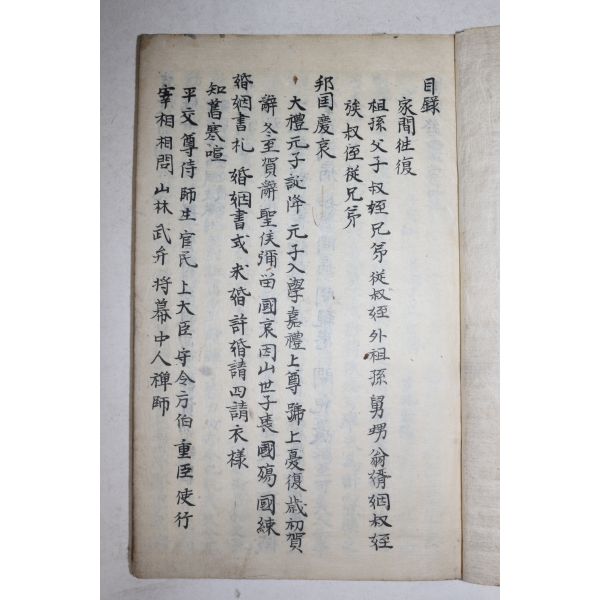 目録
家間徃復
祖孫 父子 叔姪 兄弟 從叔姪 外祖孫 舅甥 翁婿 姻叔姪
族叔侄 從兄弟
邦国慶哀
大禮 元子誕降 元子入學 嘉禮 上尊號 上憂復 歳初賀
辭 冬至賀辭 聖侯彌留 國哀 因山 世子喪 國殤 國練
婚姻書札 婚姻書式 求婚 許婚 請四 請衣樣
知舊寒喧
平交 尊侍 師生 官民 上大臣 守令方伯 重臣 使行
宰相相問 山林 武弁 将幕 中人 禅師